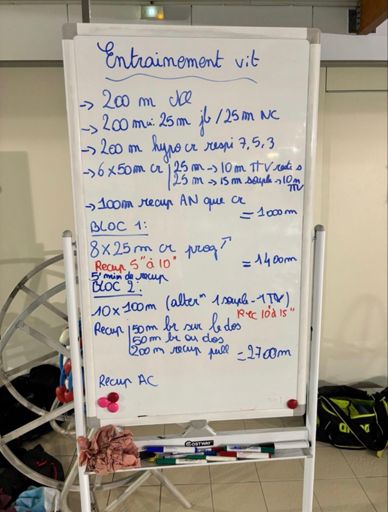 Entrainement vit
→ 200 m
→ 200 m : 25 m jb / 25 m NC
→ 200 m hypo cr respi 7, 5, 3
→ 6 x 50 m cr | 25 m → 10 m TTV
25 m → 15 m souple → 10 m TTV
→ 100 m recup AN que cr
= 1000 m
BLOC 1:
8 x 25 m cr prog ↗
Recup 5" à 10"
= 1400 m
5' min de recup
BLOC 2:
10 x 100 m (altern 1 souple - 1 TTV)
rec 10 à 15"
Recup | 50 m br sur le dos
50 m br ou dos
200 m recup pull
= 2700 m
Recup AC
COSTWAY